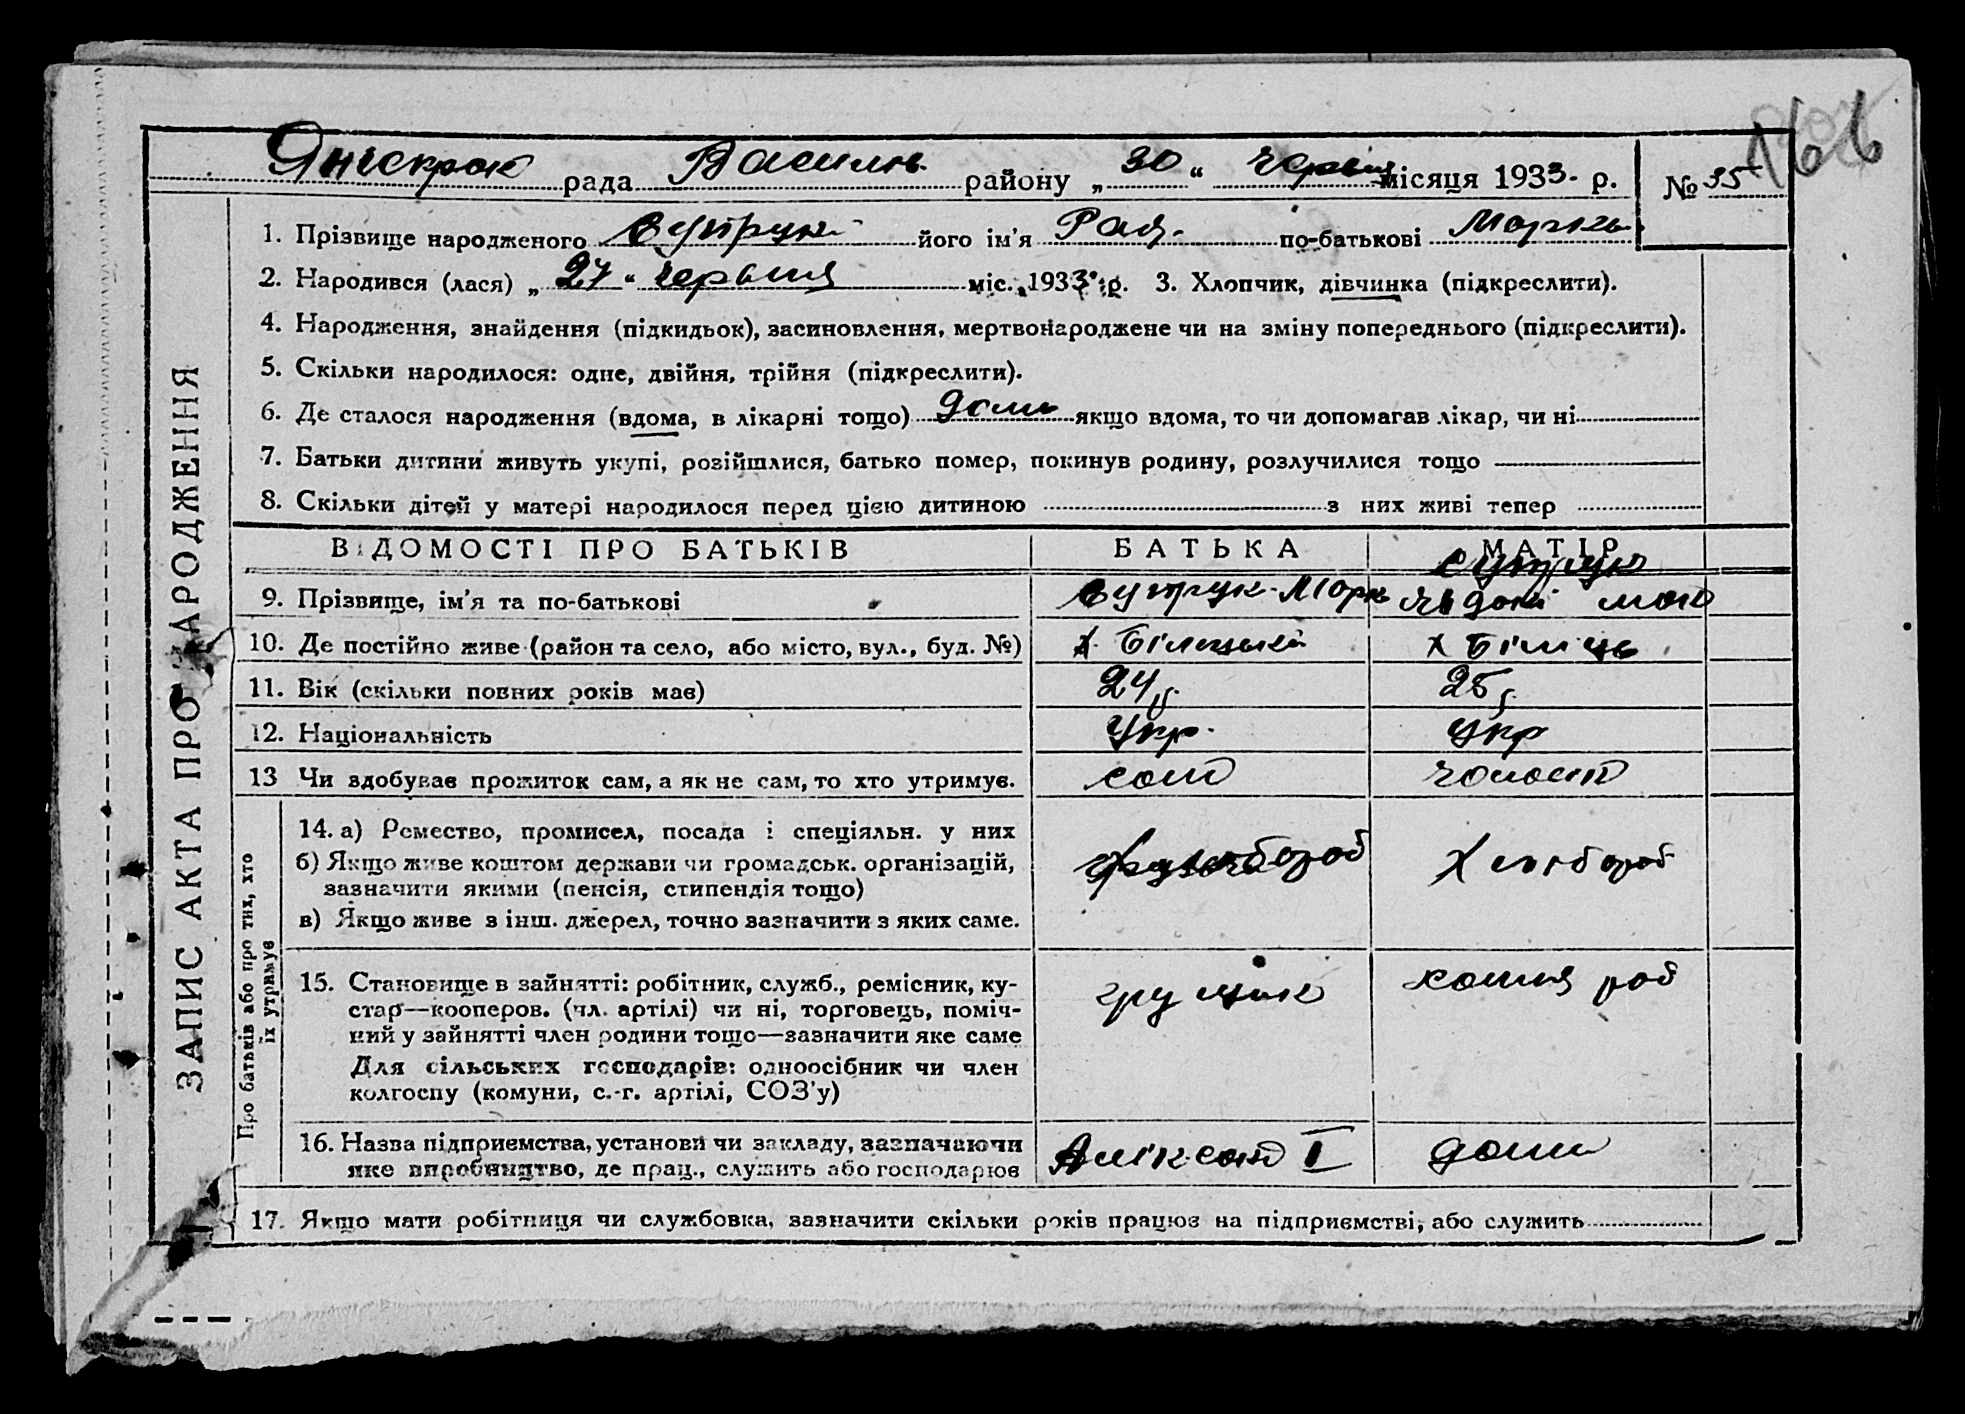 рада Василь району „ 30 “ червня місяця 1933 р. № 35
166
1. Прізвище народженого Супрун його ім'я Рая. по-батькові Марківн
2. Народився (лася) „ 27 “ червня міс. 1933 р. 3. Хлопчик, дівчинка (підкреслити).
4. Народження, знайдення (підкидьок), засиновлення, мертвонароджене чи на зміну попереднього (підкреслити).
5. Скільки народилося: одне, двійня, трійня (підкреслити).
6. Де сталося народження (вдома, в лікарні тощо) дома якщо вдома, то чи допомагав лікар, чи ні
7. Батьки дитини живуть укупі, розійшлися, батько помер, покинув родину, розлучилися тощо
8. Скільки дітей у матері народилося перед цією дитиною з них живі тепер
ВІДОМОСТІ ПРО БАТЬКІВ БАТЬКА МАТІР
9. Прізвище, ім'я та по-батькові Супрун Марк Супрун
10. Де постійно живе (район та село, або місто, вул., буд. №)
11. Вік (скільки повних років має) 24 25
12. Національність Укр. Укр
13 Чи здобував прожиток сам, а як не сам, то хто утримує. сам
14. а) Ремество, промисел, посада і спеціяльн. у них
б) Якщо живе коштом держави чи громадськ. організацій,
зазначити якими (пенсія, стипендія тощо)
в) Якщо живе з інш. джерел, точно зазначити з яких саме.
хлібороб
15. Становище в зайнятті: робітник, служб., ремісник, ку-
стар—кооперов. (чл. артілі) чи ні, торговець, поміч-
ний у зайнятті член родини тощо—зазначити яке саме
Для сільських господарів: одноосібник чи член
колгоспу (комуни, с.-г. артілі, СОЗ'у)
16. Назва підприємства, установи чи закладу, зазначаючи
яке виробництво, де прац., служить або господарює
дома
17. Якщо мати робітниця чи службовка, зазначити скільки років працює на підприємстві, або служить
ЗАПИС АКТА ПРО НАРОДЖЕННЯ
Про батьків або про тих, хто
їх утримує